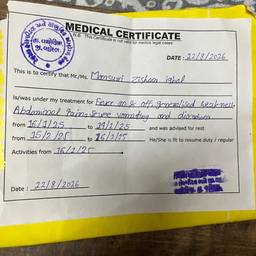 MEDICAL CERTIFICATE
N.B. This Certificate is not valid for medico legal cases.
DATE: 22/8/2026
This is to certify that Mr./Ms. Mansuri Zishan Iqbal
is/was under my treatment for Fever on & off, generalised weakness
Abdominal Pain, severe vomiting and diarrhoea
from 16/1/25 to and was advised for rest
from 15/2/25 to He/She is fit to resume duty / regular
Activities from 16/2/25
Date: 22/8/2026